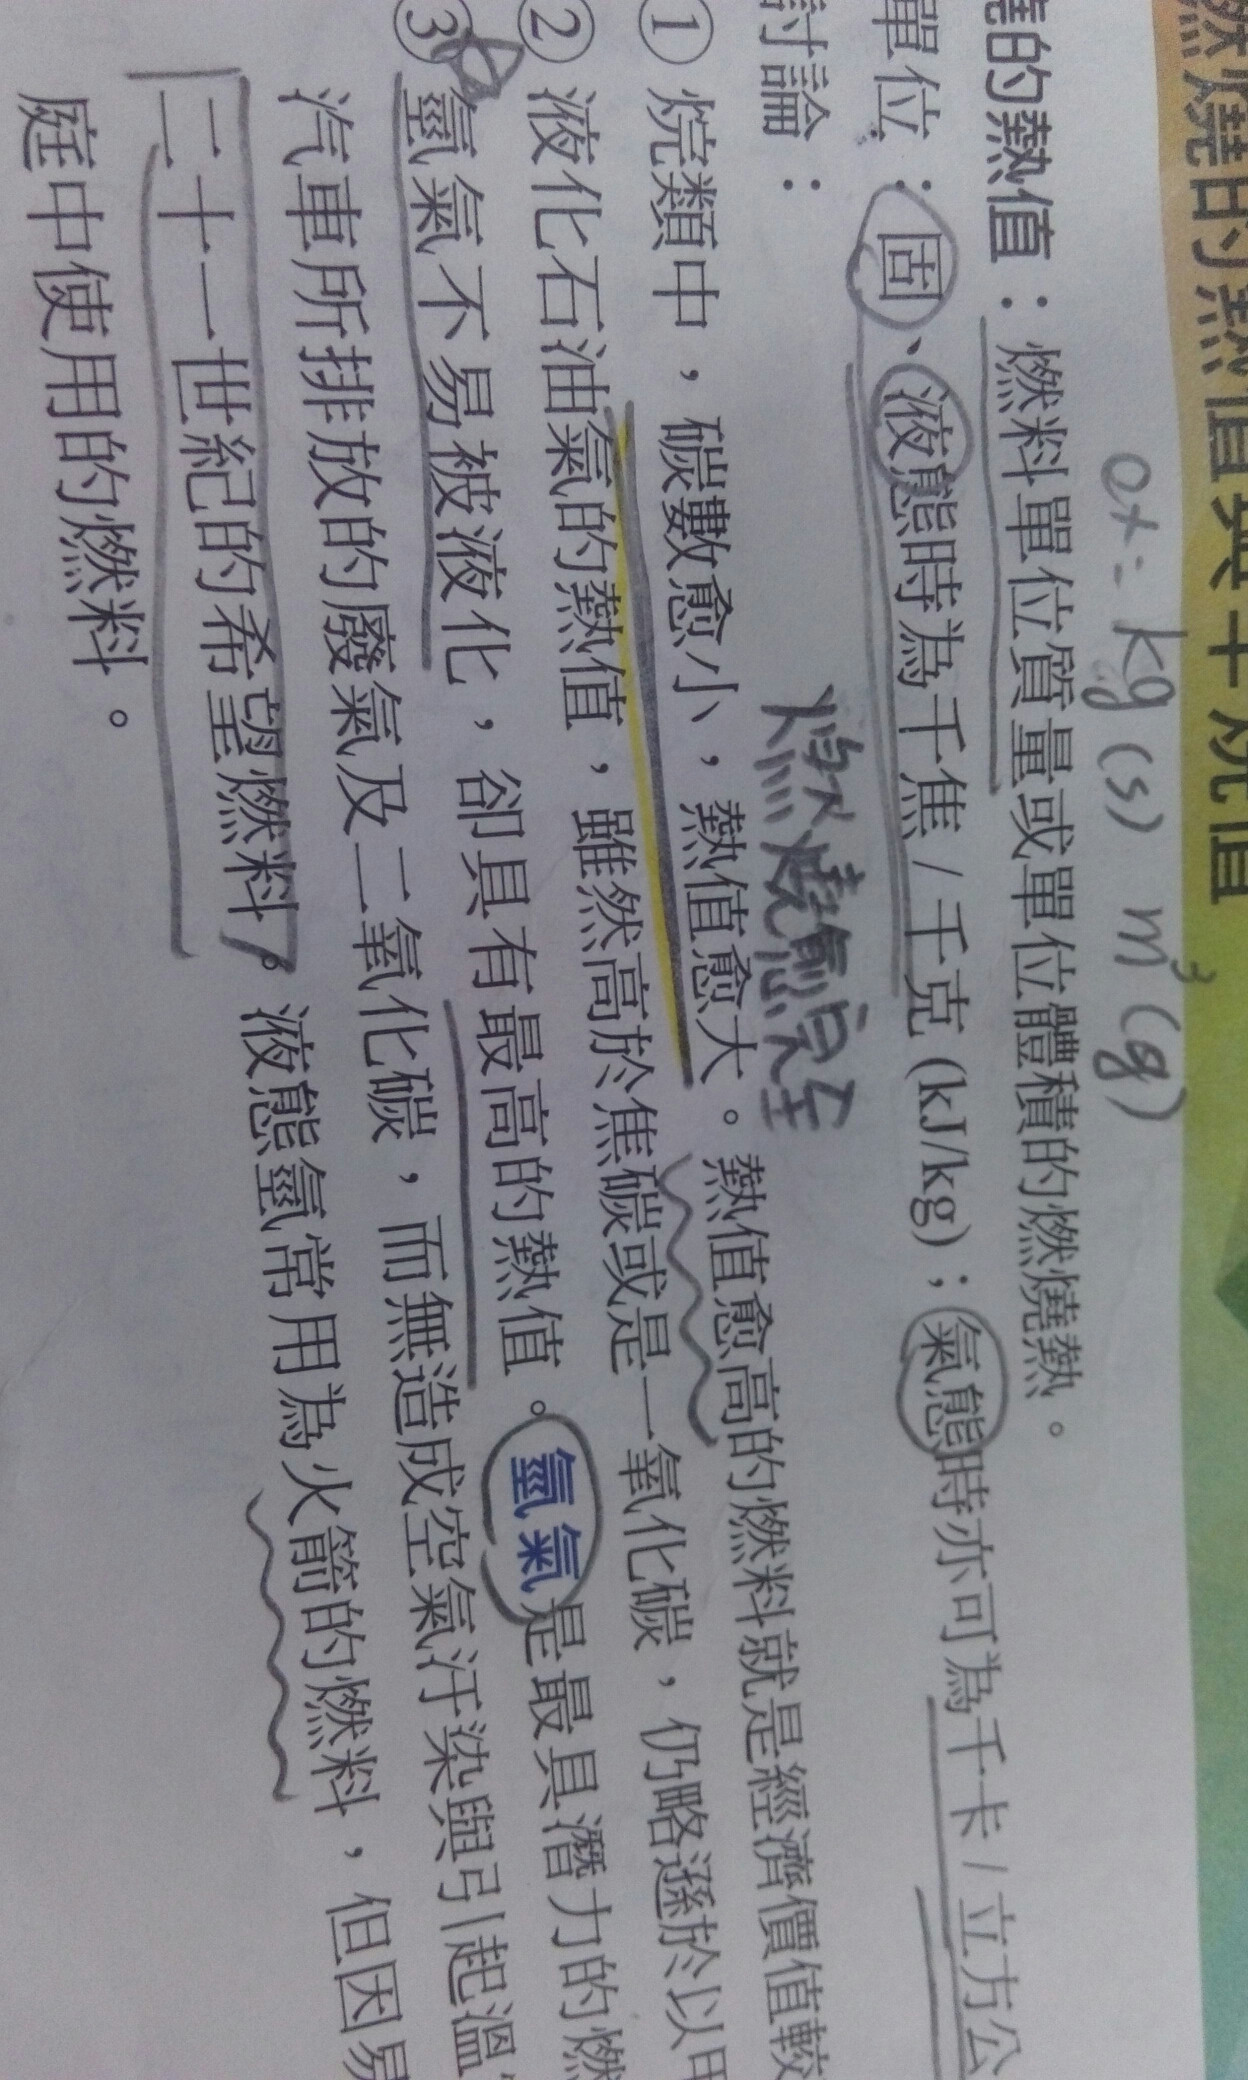 燃燒的熱值與辛烷值
ex: kg(s) m³(g)
的熱值：燃料單位質量或單位體積的燃燒熱。
單位：固、液態時為千焦/千克(kJ/kg)；氣態時亦可為千卡/立方公
討論：
燃燒愈完全
① 烷類中，碳數愈小，熱值愈大。熱值愈高的燃料就是經濟價值較
② 液化石油氣的熱值，雖然高於焦碳或是一氧化碳，仍略遜於以甲
③ 氫氣不易被液化，卻具有最高的熱值。氫氣是最具潛力的燃
汽車所排放的廢氣及二氧化碳，而無造成空氣汙染與引起溫
二十一世紀的希望燃料。液態氫常用為火箭的燃料，但因易
庭中使用的燃料。